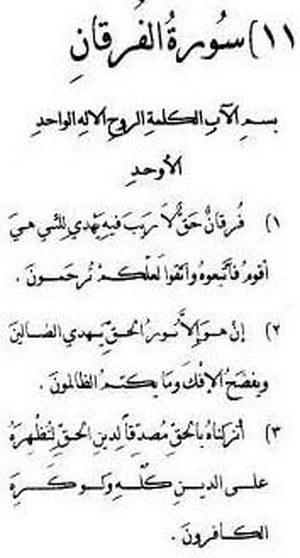 ١١) سُورَةُ الفُرقَانِ
بسمِ الآبِ الكلمةِ الروحِ الإلهِ الواحدِ
الأوحدِ
١) فُرقانٌ حَقٌّ لاَ رَيبَ فيهِ يَهْدي لِلَّتي هيَ
أقومُ فاتَّبعوهُ واتقوا لعلَّكمْ تُرحمونَ .
٢) إنْ هوَ إلاَّ نُورُ الحقِّ يَهدي الضالينَ
ويفضَحُ الإفْكَ ومَا يكتُمُ الظالمونَ .
٣) أنزلناهُ بالحقِّ مُصدِّقاً لدينِ الحقِّ لنُظْهِرَهُ
على الدينِ كُلِّهِ ولو كَرِهَ
الكافرونَ .